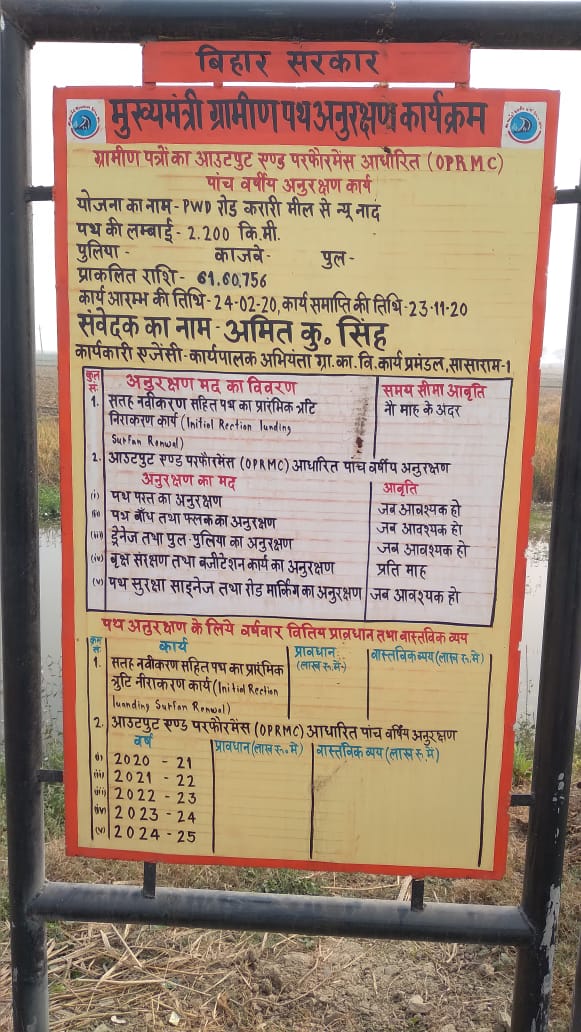 बिहार सरकार
मुख्यमंत्री ग्रामीण पथ अनुरक्षण कार्यक्रम
ग्रामीण पत्रों का आउटपुट एण्ड परफौरमेंस आधारित (OPRMC)
पांच वर्षीय अनुरक्षण कार्य
योजना का नाम - PWD रोड करारी मील से न्यू नाद
पथ की लम्बाई - 2.200 कि.मी.
पुलिया - काजवे - पुल -
प्राकलित राशि - 61.60,756
कार्य आरम्भ की तिथि - 24-02-20, कार्य समाप्ति की तिथि - 23-11-20
संवेदक का नाम - अमित कु. सिंह
कार्यकारी एजेंसी - कार्यपालक अभियंता ग्रा.का.वि.कार्य प्रमंडल, सासाराम-1
क्रम सं. अनुरक्षण मद का विवरण समय सीमा आवृति
1. सतह नवीकरण सहित पथ का प्रारंभिक त्रटि नौ माह के अंदर
निराकरण कार्य (Initial Rection lunding
Surfan Ronwal)
2. आउटपुट एण्ड परफौरमेंस (OPRMC) आधारित पांच वर्षीय अनुरक्षण
अनुरक्षण का मद आवृति
(i) पथ परत का अनुरक्षण जब आवश्यक हो
(ii) पथ बाँध तथा फ्लक का अनुरक्षण जब आवशयक हो
(iii) ड्रेनेज तथा पुल-पुलिया का अनुरक्षण जब आवश्यक हो
(iv) बृक्ष संरक्षण तथा बजीटेशन कार्य का अनुरक्षण प्रति माह
(v) पथ सुरक्षा साइनेज तथा रोड मार्किंग का अनुरक्षण जब आवश्यक हो
पथ अनुरक्षण के लिये वर्षवार वितिय प्रावधान तथा वास्तविक व्यय
क्रम सं. कार्य प्रावधान (लाख रु.में-) वास्तविक व्यय (लाख रु.में)
1. सतह नवीकरण सहित पथ का प्रारंभिक
त्रुटि नीराकरण कार्य (Initial Rection
luanding Surfan Ronwal)
2. आउटपुट एण्ड परफौरमेंस (OPRMC) आधारित पांच वर्षिय अनुरक्षण
वर्ष प्रावधान (लाख रु. में) वास्तविक व्यय (लाख रु. में)
(i) 2020 - 21
(ii) 2021 - 22
(iii) 2022 - 23
(iv) 2023 - 24
(v) 2024 - 25